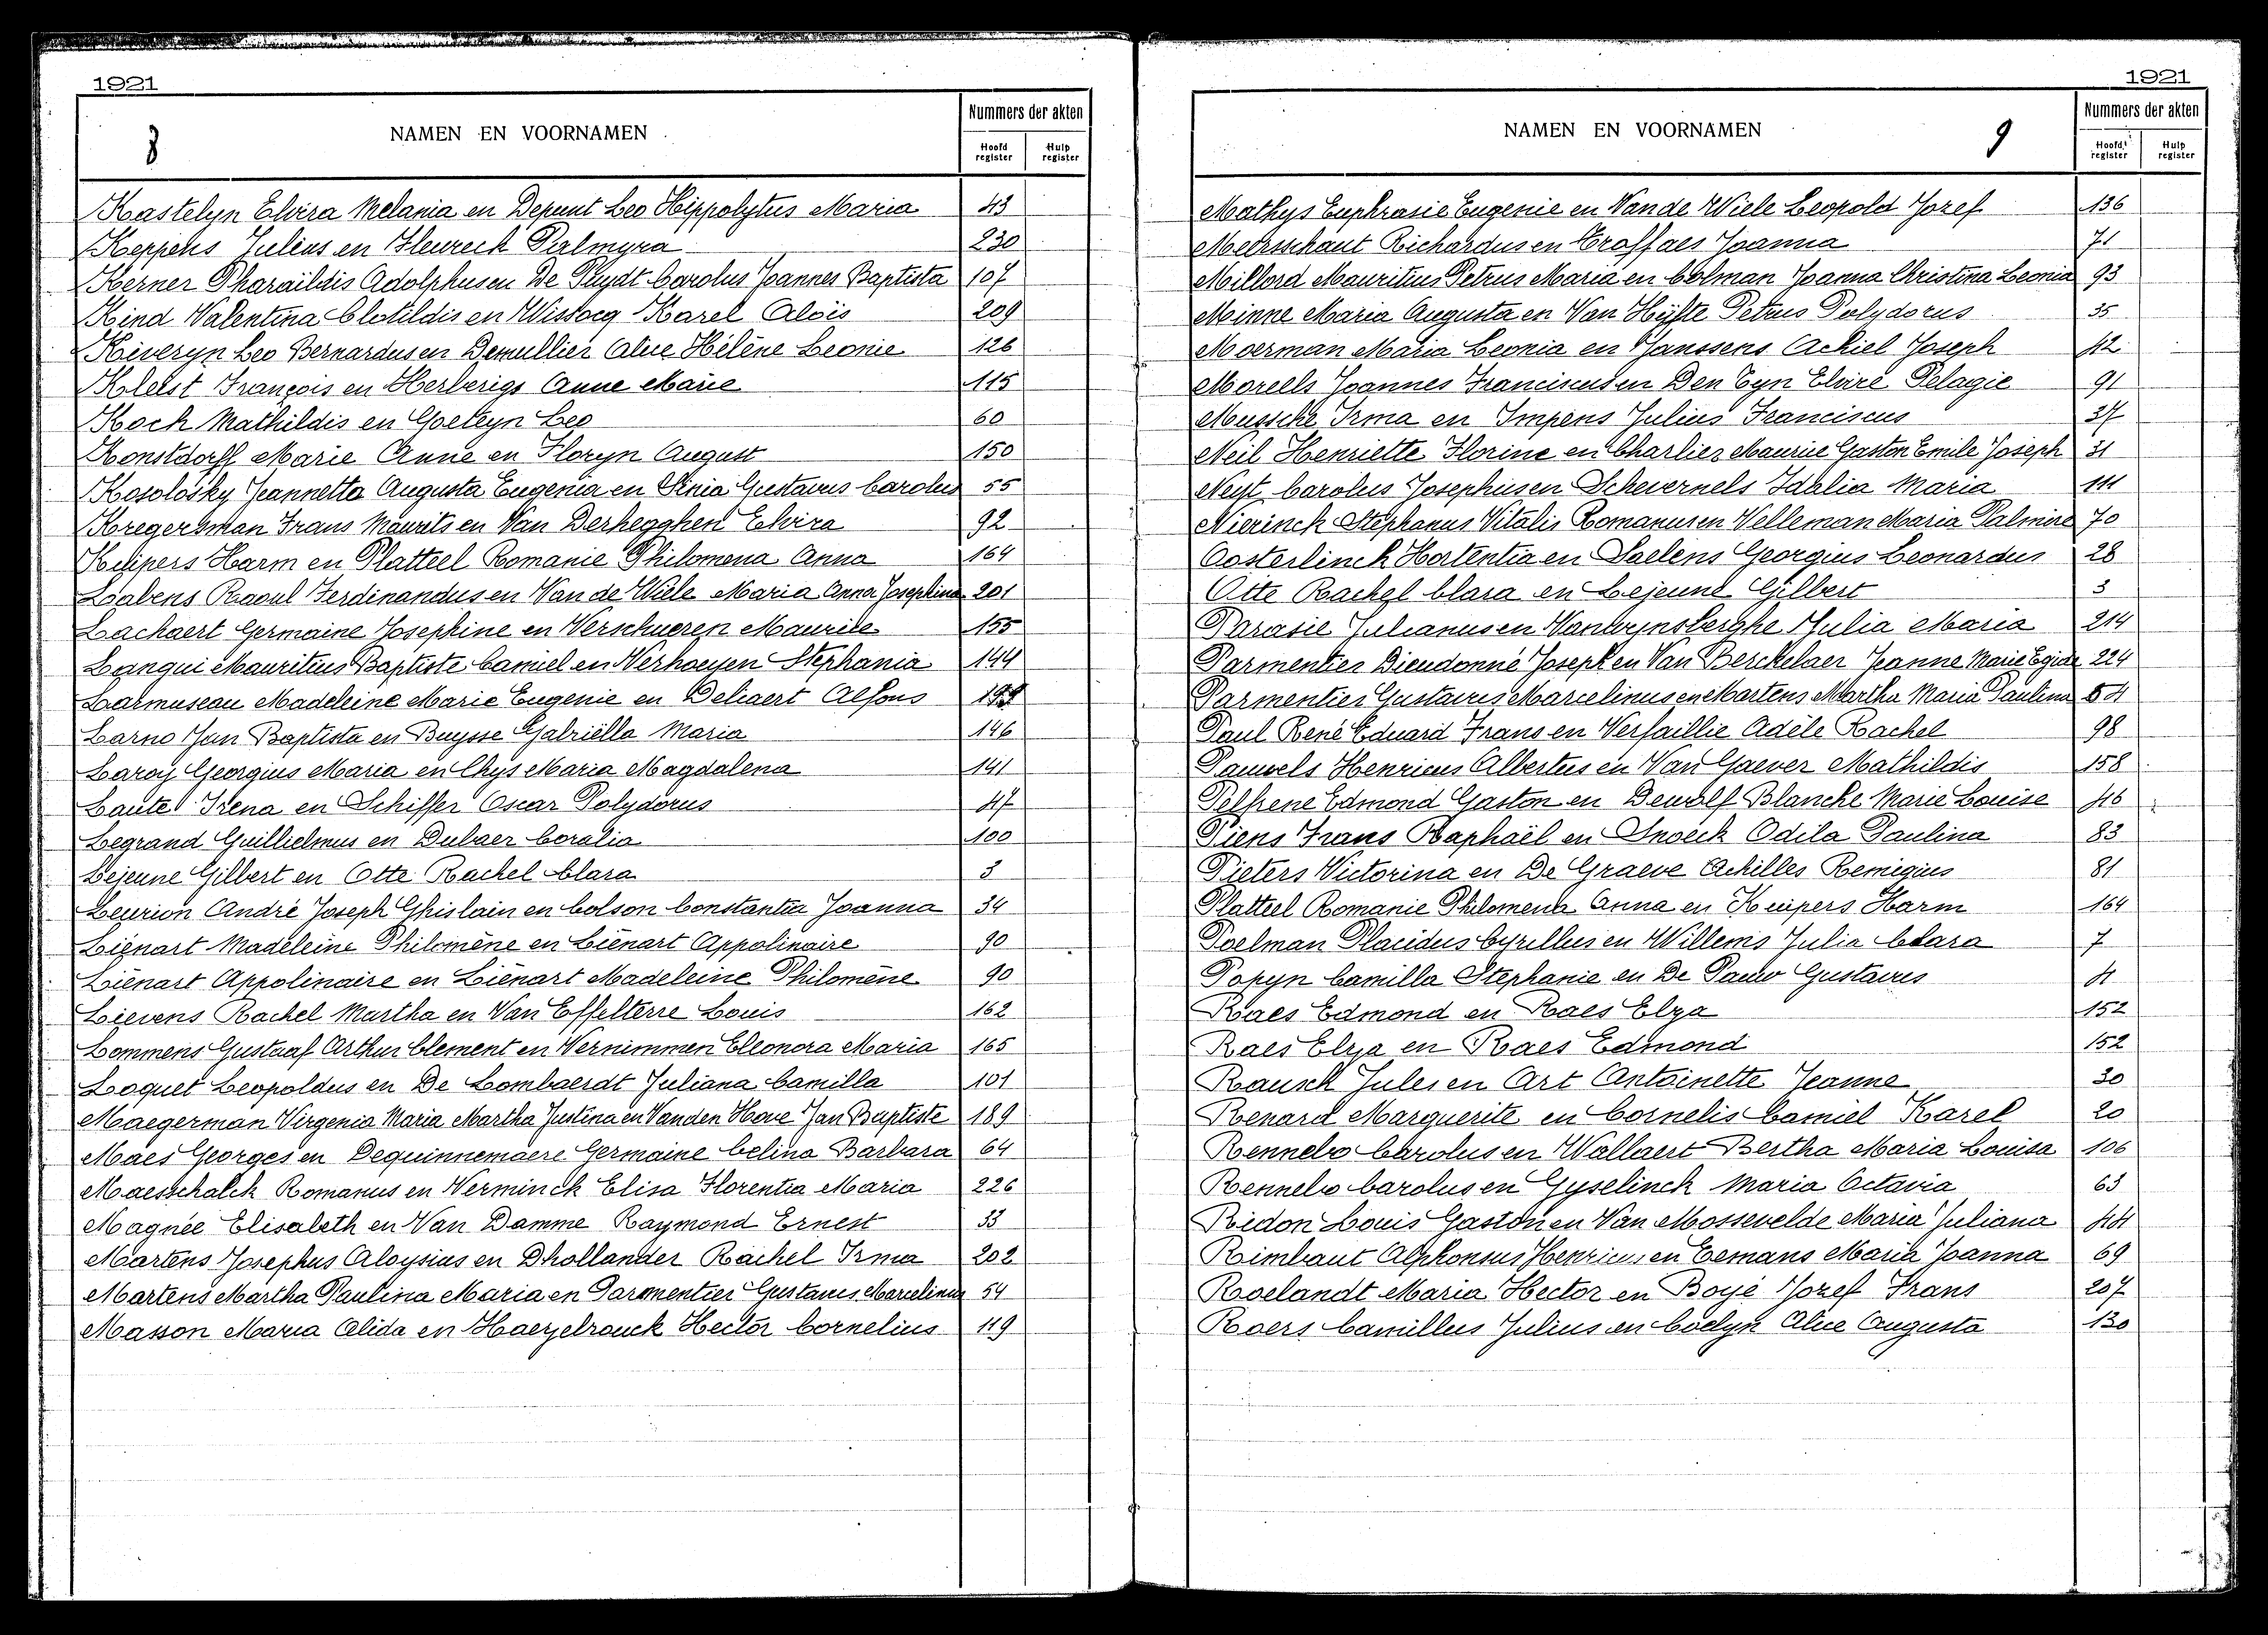 1921
8
NAMEN EN VOORNAMEN
Nummers der akten
Hoofd register
Hulp register
Kastelyn Elvira Melania en Depunt Leo Hippolytus Maria 43
Keppens Julius en Fleureck Palmyra 230
Kerner Pharaildis Adolphus en De Pluydt Carolus Joannes Baptista 107
Kind Valentina Clotildis en Wistocq Karel Aloïs 209
Kiveryn Leo Bernardus en Demullier Alice Hélène Leonie 126
François en Herberigs Anne Marie 115
Koch Mathildis en Goeteyn Leo 60
Konstdorff Marie Anne en Floryn August 150
Kosolosky Jeannetta Augusta Eugenia en Gustavus Carolus 55
Kregersman Frans Maurits en Van Derhegghen Elvira 92
Kuipers Harm en Platteel Romanie Philomena Anna 164
Labens Raoul Ferdinandus en Van de Wiele Maria Anna Josephina 201
Lachaert Germaine Josephine en Verschueren Maurice 155
Lanqui Mauritius Baptiste Camiel en Verhoeyen Stephania 144
Larmuseau Madeleine Marie Eugenie en Delicaert Alfons
Larno Jan Baptista en Buysse Gabriëlla Maria 146
Laroy Georgius Maria en Ghys Maria Magdalena 141
Lautel Irena en Schiffer Oscar Polydorus 47
Legrand Guillielmus en Dubaer Coralia 100
Lejeune Gilbert en Otte Rachel Clara 3
Leurion André Joseph Ghislain en Colson Constantia Joanna 34
Liénart Madeleine Philomène en Liénart Appolinaire 90
Liénart Appolinaire en Liénart Madeleine Philomène 90
Lievens Rachel Martha en Van Effelterre Louis 162
Lommens Gustaaf Arthur Clement en Vernimmen Eleonora Maria 165
Loquet Leopoldus en De Lombaerdt Juliana Camilla 101
Maegerman Virgenia Maria Martha Justina en Vanden Hove Jan Baptiste 189
Maes Georges en Dequinnemaere Germaine Celina Barbara 64
Maesschalck Romanus en Verminck Elisa Florentia Maria 226
Magnée Elisabeth en Van Damme Raymond Ernest 33
Martens Josephus Aloysius en Dhollander Rachel Irma 202
Martens Martha Paulina Maria en Parmentier Gustavus Marcelinus 54
Masson Maria Alida en Haezelrouck Hector Cornelius 119
1921
9
NAMEN EN VOORNAMEN
Nummers der akten
Hoofd register
Hulp register
Mathys Euphrasie Eugenie en Van de Wiele Leopold Jozef 136
Meersschaut Richardus en Troffaes Joanna 71
Millord Mauritius Petrus Maria en Colman Joanna Christina Leonia 93
Minne Maria Augusta en Van Hyfte Petrus Polydorus 35
Moerman Maria Leonia en Janssens Achiel Joseph 42
Moreels Joannes Franciscus en Den Tyn Elvire Pelagie 91
Mussche Irma en Impens Julius Franciscus 27
Neil Henriette Florine en Charlier Maurice Gaston Emile Joseph 31
Neyt Carolus Josephus en Schevernels Idalia Maria 111
Nierinck Stephanus Vitalis Romanus en Velleman Maria Palmire 70
Oosterlinck Hortentia en Saelens Georgius Leonardus 28
Otte Rachel Clara en Lejeune Gilbert 3
Parasie Julianus en Vanwynsberghe Julia Maria 214
Parmentier Dieudonné Joseph en Van Berckelaer Jeanne Marie Egide 224
Parmentier Gustavus Marcelinus en Martens Martha Maria Paulina 54
Paul René Eduard Frans en Versaillie Adèle Rachel 98
Pauwels Henricus Albertus en Van Gaever Mathildis 158
Pelhene Edmond Gaston en Dewolf Blanche Marie Louise 46
Piens Frans Raphaël en Snoeck Odila Paulina 83
Pieters Victorina en De Graeve Achilles Remigius 81
Platteel Romanie Philomena Anna en Kuipers Harm 164
Poelman Placidus Cyrillus en Willems Julia Clara 7
Popyn Camilla Stephanie en De Pauw Gustavus 4
Raes Edmond en Raes Elza 152
Raes Elza en Raes Edmond 152
Rausch Jules en Art Antoinette Jeanne 30
Renard Marguerite en Cornelis Camiel Karel 20
Rennebo Carolus en Wallaert Bertha Maria Louisa 106
Rennebo Carolus en Gyselinck Maria Octavia 63
Ridon Louis Gaston en Van Mossevelde Maria Juliana 44
Rimbaut Alphonsus Henricus en Eemans Maria Joanna 69
Roelandt Maria Hector en Boyé Jozef Frans 207
Roers Camillus Julius en Coelyn Alice Augusta 130